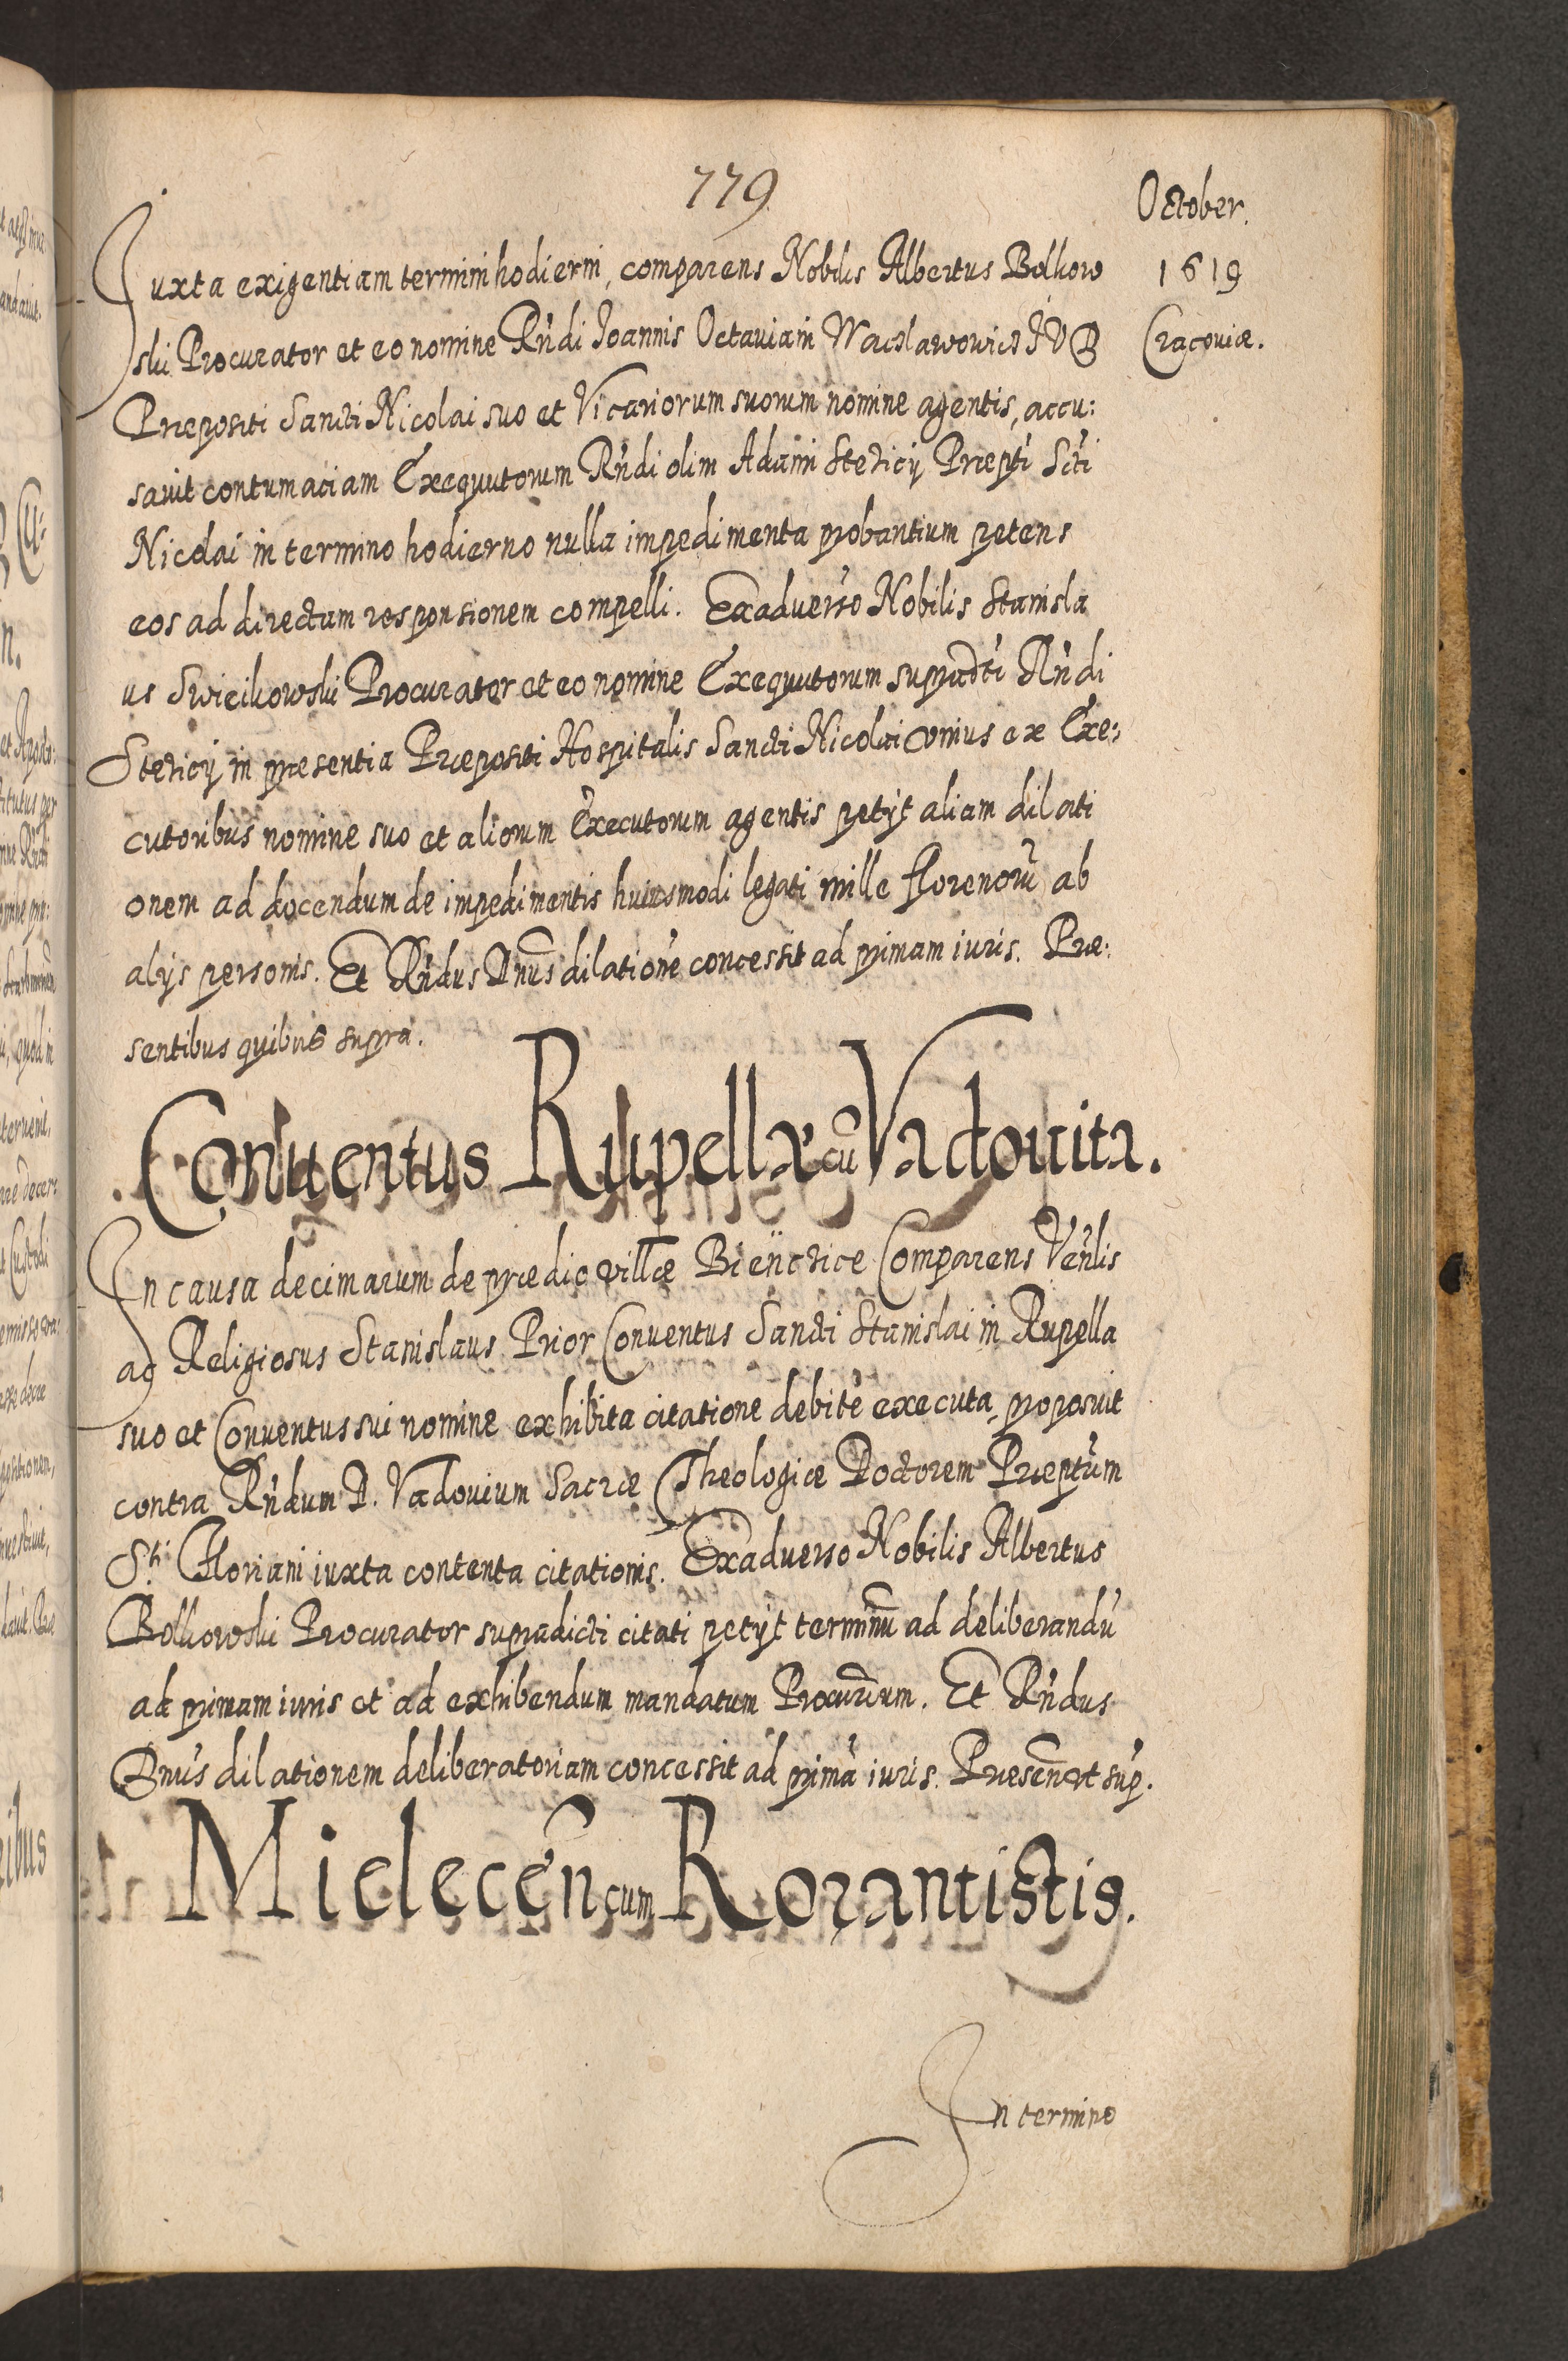 779
October.
1619
Cracoviæ.
Juxta exigentiam termini hodierni, comparens Nobilis Albertus Bolkow
ski Procurator et eo nomine Rñdi Joannis Octaviani Waczlawowicz JVD
Præpositi Sancti Nicolai suo et Vicariorum suorum nomine agentis, accu:
savit contumaciam Exequutorum Rñdi olim Adami Steticÿ Præpti Scti
Nicolai in termino hodierno nulla impedimenta probantium petens
eos ad directam responsionem compelli. Exadverso Nobilis Stanisla
us Swieikowski Procurator et eo nomine Exequutorum supradcti Rñdi
Steticÿ in præsentia Præpositi Hospitalis Sancti Nicolai vnius ex Exe:
cutoribus nomine suo et aliorum Executorum agentis petÿt aliam dilati
onem ad docendum de impedimentis huiusmodi legati mille florenorũ ab
alÿs personis. Et Rñdus Dnus dilationẽ concessit ad primam iuris. Præ:
sentibus quibus supra.
Conventus Rupellæ cũ Vadovita.
In causa decimarum de prædio villæ Bieñczice Comparens Venlis
ac Religiosus Stanislaus Prior Conventus Sancti Stanislai in Rupella
suo et Conventus sui nomine exhibita citatione debitè executa, proposuit
contra Rñdum D. Vadovium Sacræ Theologiæ Doctorem Præptum
Sti Floriani iuxta contenta citationis. Exadverso Nobilis Albertus
Bolkowski Procurator supradicti citati petÿt terminũ ad deliberandũ
ad primam iuris et ad exhibendum mandatum Procurium. Et Rñdus
Dnus dilationem deliberatoriam concessit ad primã iuris. Præsen̄ vt sup.
Mielecen̄ cum Rorantistis.
In termino